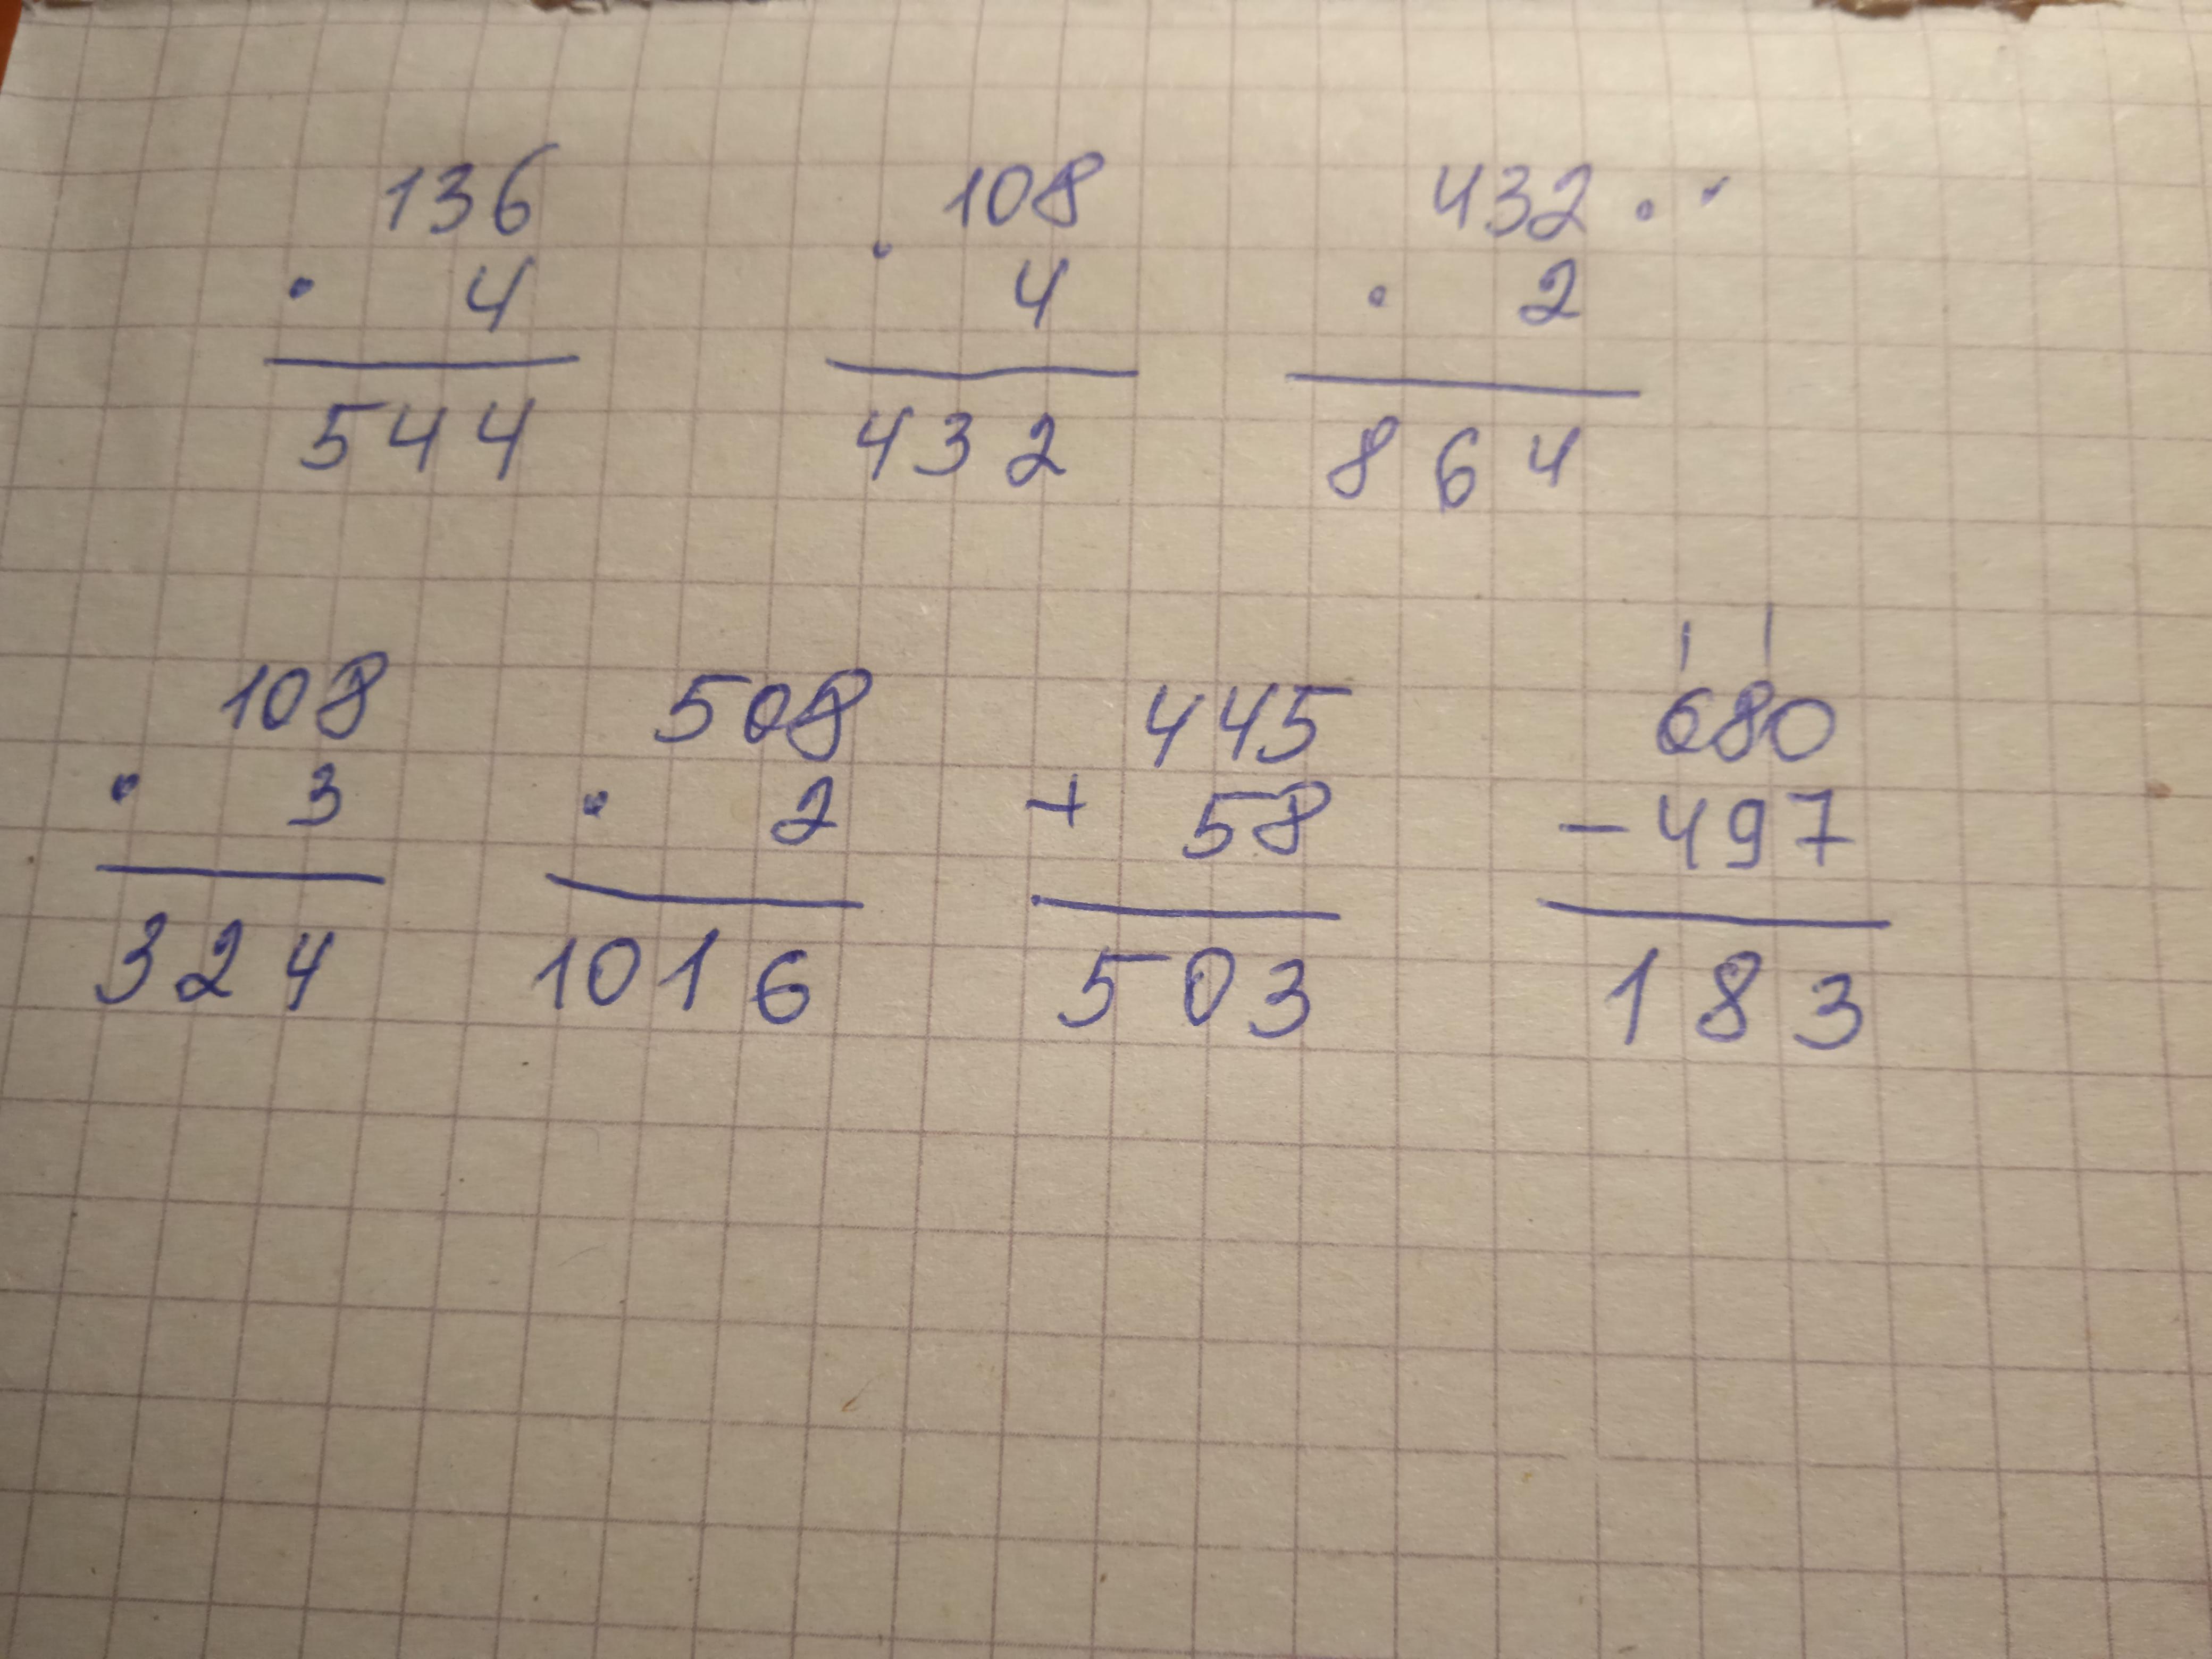 136 108 432
· 4 · 4 · 2
544 432 864
108 508 445 680
· 3 · 2 + 58 - 497
324 1016 503 183